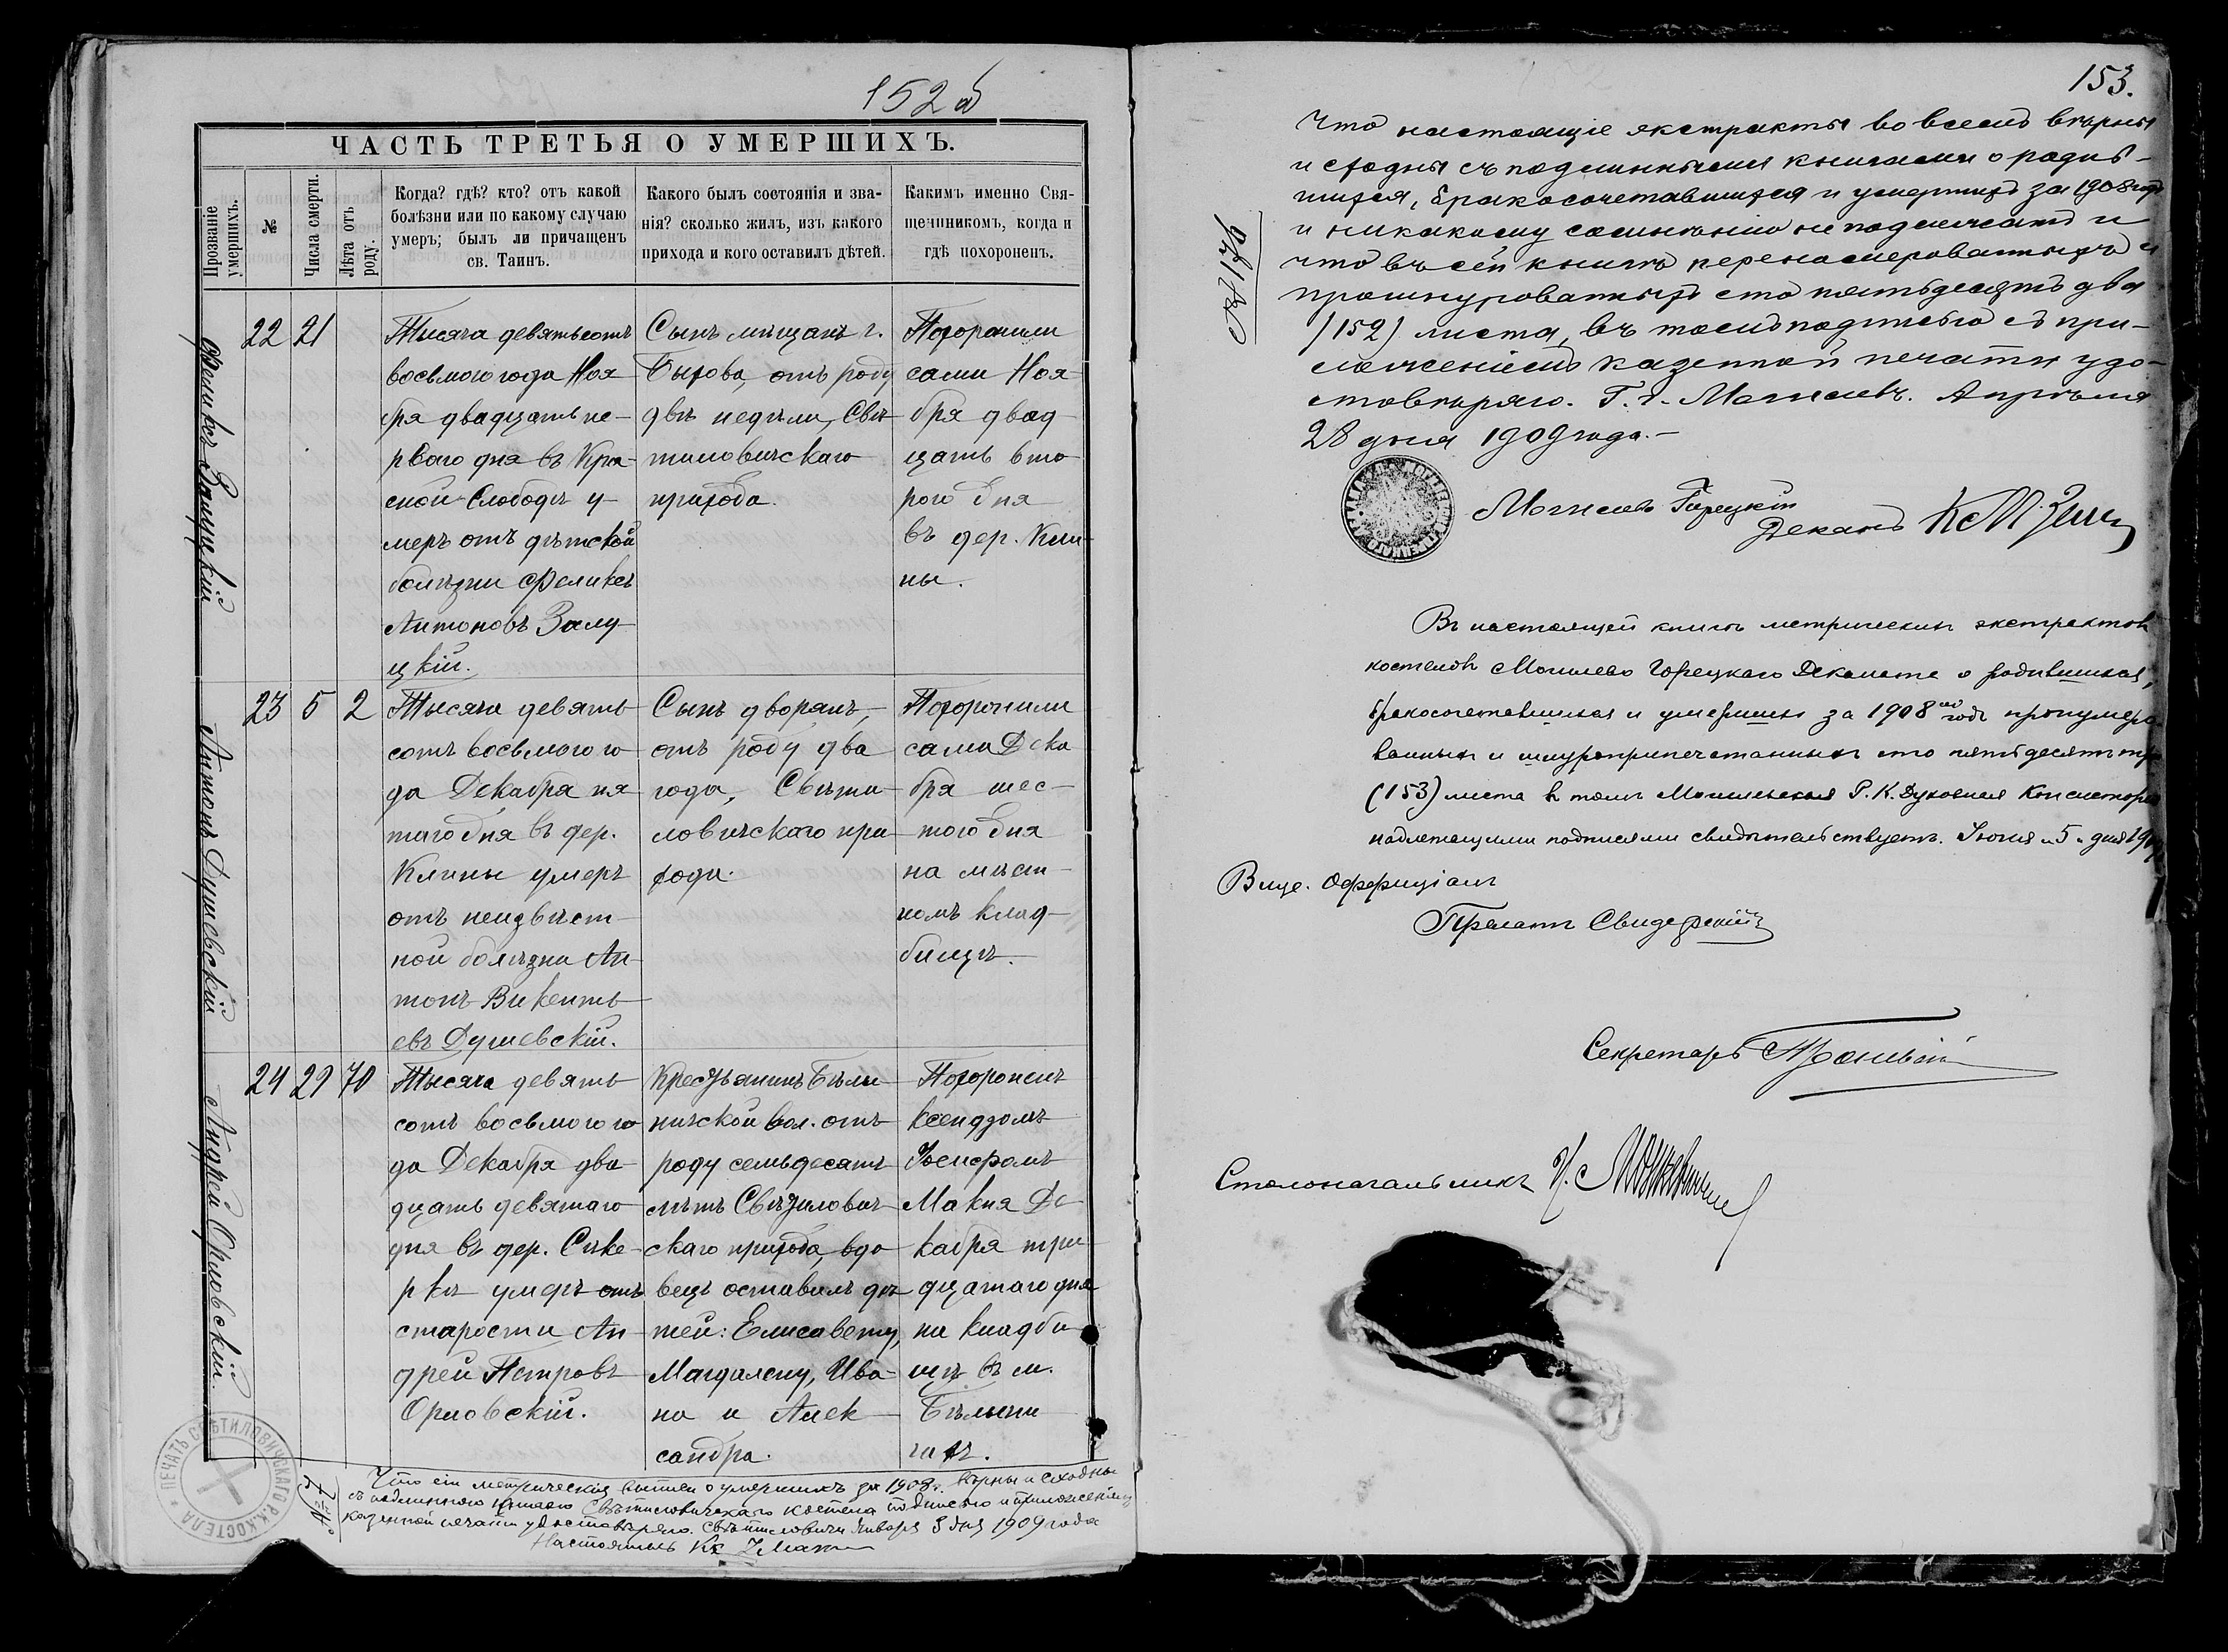 152 об
ЧАСТЬ ТРЕТЬЯ О УМЕРШИХЪ.
Прозваніе умершихъ.
№
Числа смерти.
Лѣта отъ роду.
Когда? гдѣ? кто? отъ какой
болѣзни или по какому случаю
умеръ; былъ ли причащенъ
св. Таинъ.
Какого былъ состоянія и зва-
нія? сколько жилъ, изъ какого
прихода и кого оставилъ дѣтей.
Какимъ именно Свя-
щенникомъ, когда и
гдѣ похороненъ.
Феликсъ Залуцкій
22 21
Тысяча девятьсотъ
восьмого года Ноя
бря двадцать пе-
рваго дня въ Кра-
сной Слободѣ у-
меръ отъ дѣтской
болѣзни Феликсъ
Антоновъ Залу-
цкій.
Сынъ мѣщанъ г.
Быхова, отъ роду
двѣ недѣли, Свѣ-
тиловичскаго
прихода.
Похоронили
сами Ноя-
бря двад-
цать вто-
рого дня
въ дер. Кли-
ны.
Антонъ Душевскій
23 5 2
Тысяча девять-
сотъ восьмого го
да Декабря пя-
таго дня въ дер.
Клины умеръ
отъ неизвѣст-
ной болѣзни Ан-
тонъ Викенть-
евъ Душевскій.
Сынъ дворянъ,
отъ роду два
года, Свѣти-
ловичскаго при-
хода.
Похоронили
сами Дека
бря шес-
того дня
на мѣст-
номъ клад-
бищѣ.
Андрей Орловскій
24 29 70
Тысяча девять-
сотъ восьмого го
да Декабря два-
дцать девятаго
дня въ дер. Сике-
ркѣ умеръ отъ
старости Ан-
дрей Петровъ
Орловскій.
Крестьянинъ Бѣлы-
ничской вол. отъ
роду семьдесятъ
лѣтъ Свѣтилович-
скаго прихода, вдо-
вецъ оставилъ дѣ-
тей: Елисавету,
Магдалену, Ива-
на и Алек-
сандра.
Похороненъ
ксендзомъ
Іосифомъ
Макня Де-
кабря три-
дцатаго дня
на кладби-
щѣ въ м.
Бѣлыни-
чахъ.
ПЕЧАТЬ СВѢТИЛОВИЧСКАГО Р.К.КОСТЕЛА
№ 7
Что сіи метрическія выписи о умершихъ за 1908 г. вѣрны и сходны
съ подлинною книгою Свѣтиловичскаго костела подписью и приложеніемъ
казенной печати удостовѣряю. Свѣтиловичи Января 3 дня 1909 года
Настоятель Кс.
153.
№ 176
Что настоящіе экстракты во всемъ вѣрны
и сходны съ подлинными книгами о родив-
шихся, бракосочетавшихся и умершихъ за 1908 годъ
и никакому сомнѣнію не подлежатъ и
что въ сей книгѣ перенумерованныхъ и
прошнурованныхъ сто пятьдесятъ два
(152) листа, въ томъ подписью съ при-
ложеніемъ казенной печати удо-
стовѣряю. Г. г. Могилевъ. Апрѣля
28 дня 1909 года.-
Могилево Горецкій
Деканъ
Въ настоящей книгѣ метрическихъ экстрактовъ
костеловъ Могилево Горецкаго Деканата о родившихся,
бракосочетавшихся и умершихъ за 1908 ый годъ пронумеро
ванныхъ и шнуроприпечатанныхъ сто пятьдесятъ три
(153) листа въ томъ Могилевская Р. К. Духовная Консисторія
надлежащими подписями свидѣтельствуетъ. Іюня "5" дня 190
Вице. Оффиціалъ
Прелатъ Свидерскій
Секретарь
Столоначальникъ